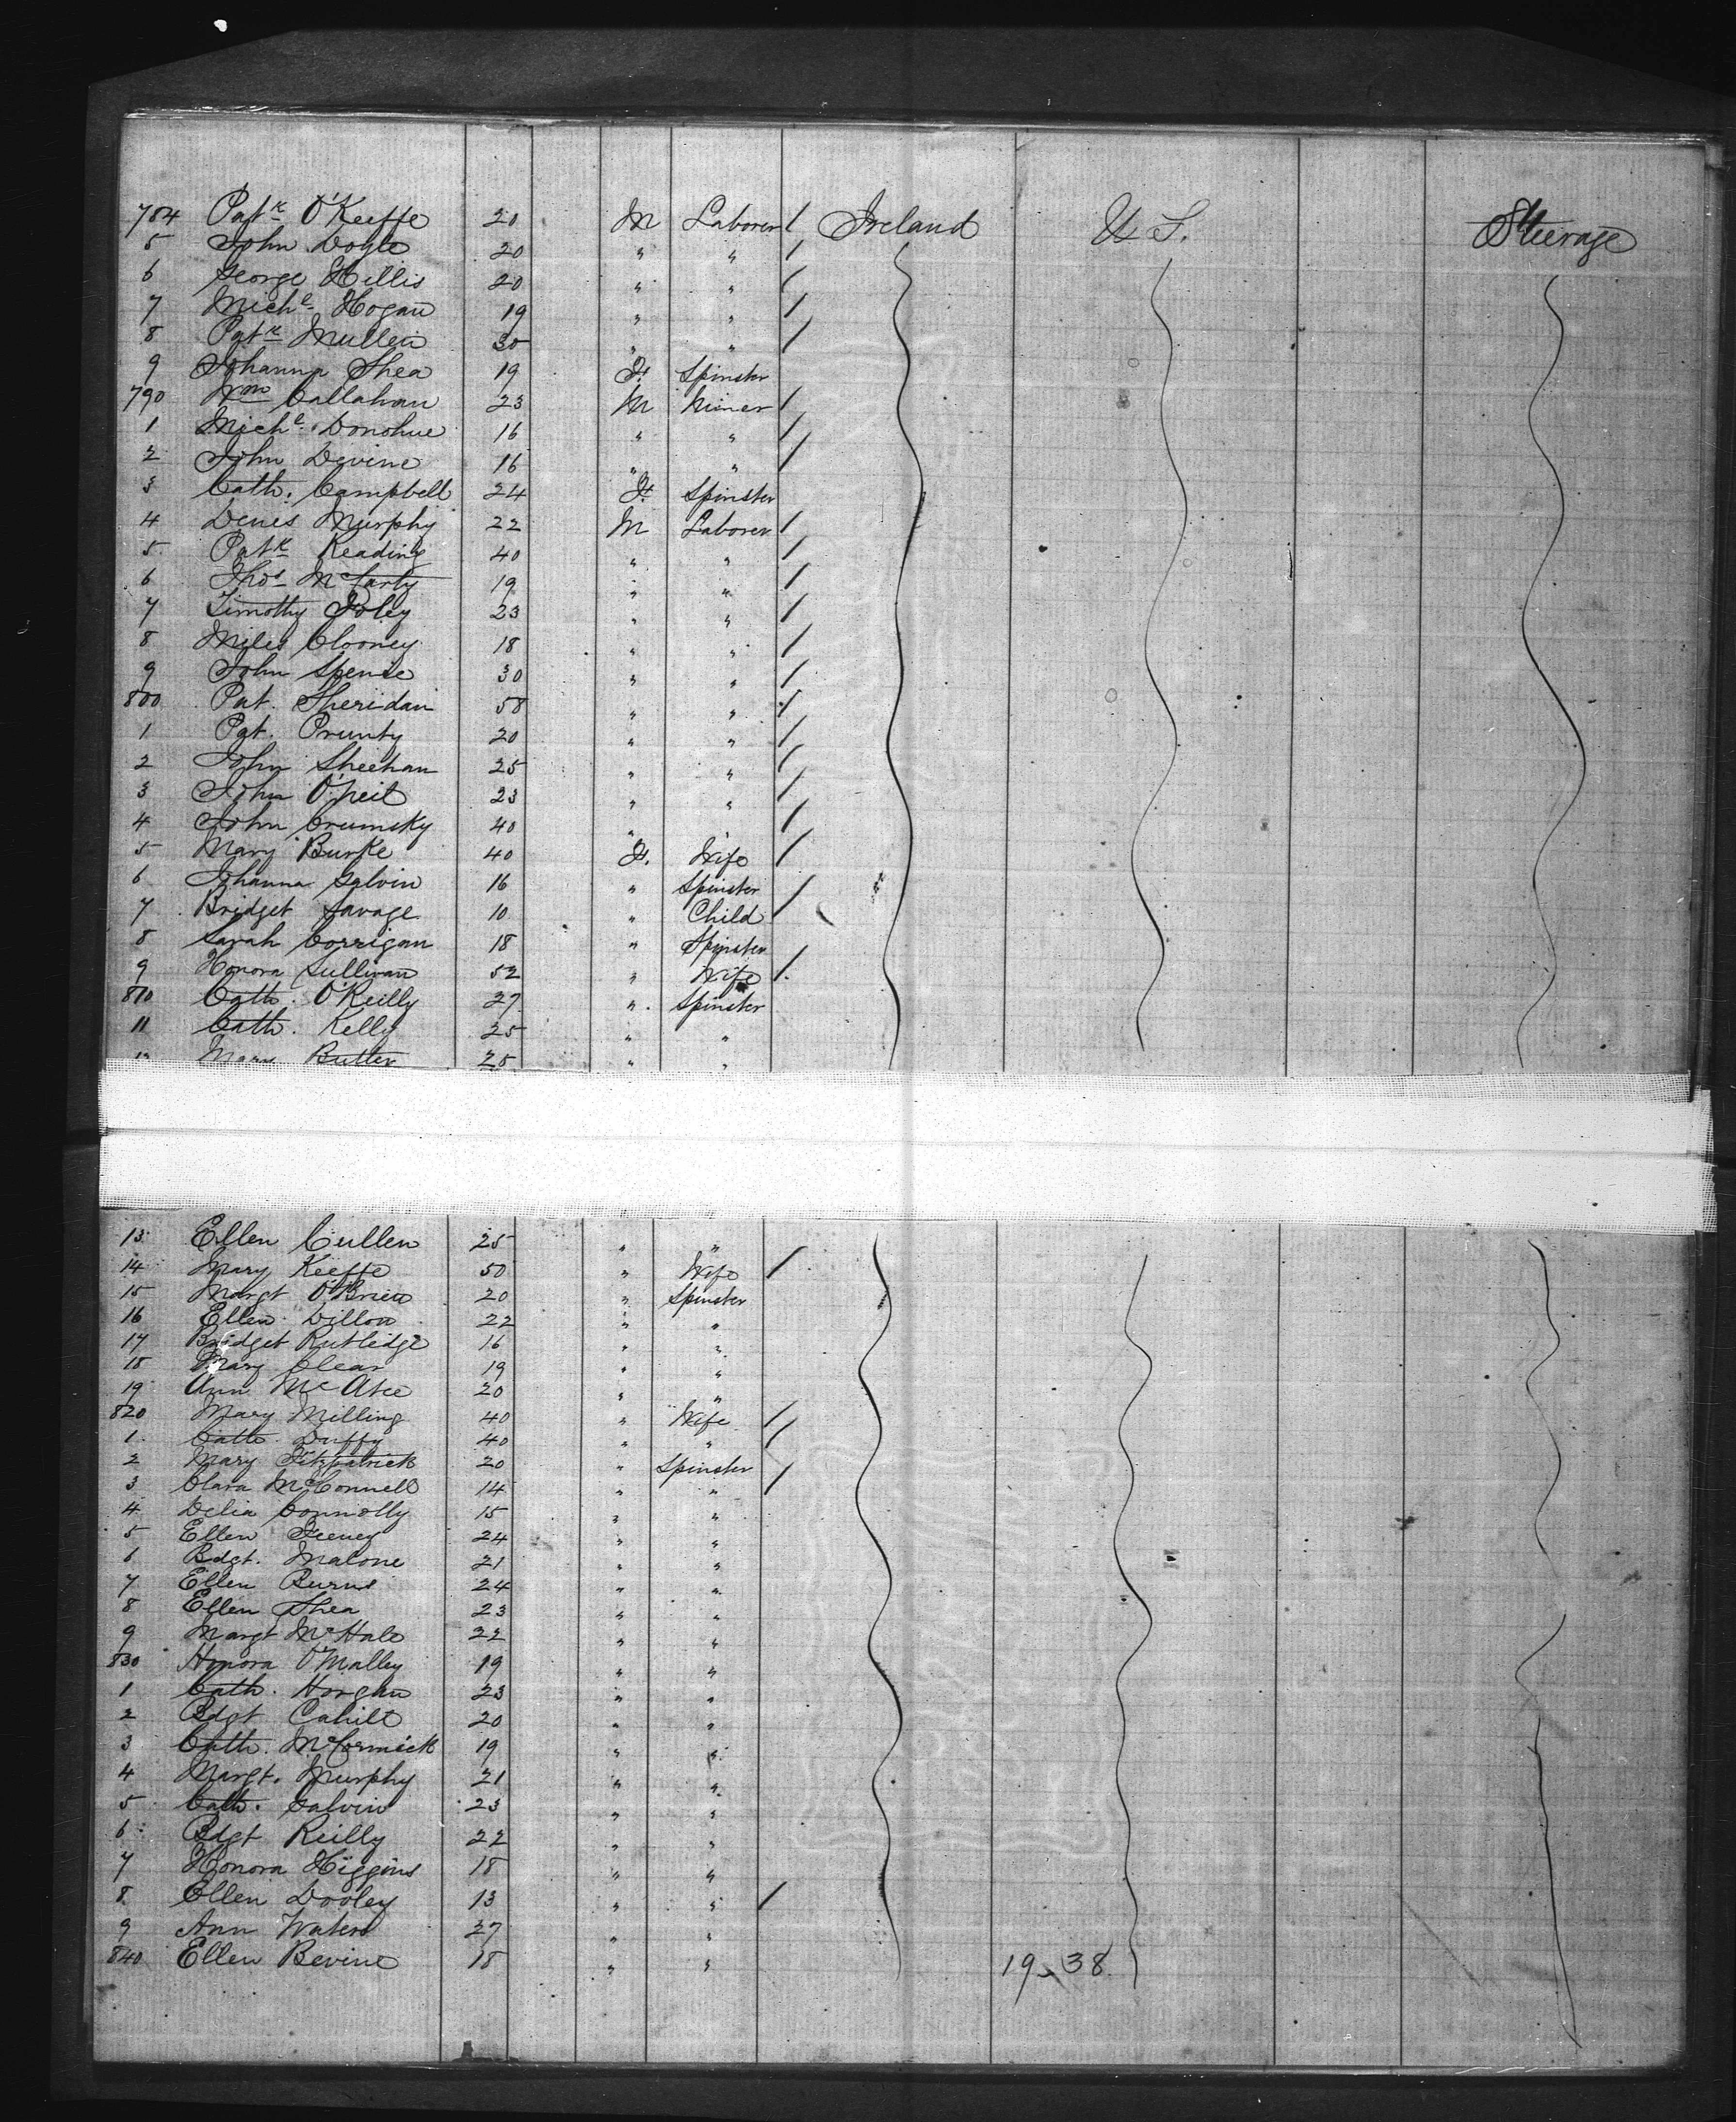 784 Patk O'Keeffe 20 M Laborer / Ireland U.S. Steerage
5 John Doyle 20 " " /
6 George Hillis 20 " " /
7 Michl Hogan 19 " " /
8 Patk Mullen 30 " " /
9 Johanna Shea 19 F. Spinster
790 Wm Callahan 23 M Miner /
1 Michl Donohue 16 " " /
2 John Devine 16 " " /
3 Cath. Campbell 24 F. Spinster
4 Denis Murphy 22 M Laborer /
5 Patk Keading 40 " " /
6 Thos McCarty 19 " " /
7 Timothy Foley 23 " " /
8 Miles Clooney 18 " " /
9 John Spense 30 " " /
800 Pat. Sheridan 58 " " /
1 Pat. Prunty 20 " " /
2 John Sheehan 25 " " /
3 John O'Neil 23 " " /
4 John Crumsky 40 " " /
5 Mary Burke 40 F. Wife /
6 Johanna Galvin 16 " Spinster /
7 Bridget Savage 10 " Child
8 Sarah Corrigan 18 " Spinster
9 Honora Sullivan 52 " Wife /
810 Cath. O'Reilly 27 " Spinster
11 Cath. Kelly 25 " "
12 Mary Butler 25 " "
13 Ellen Cullen 25 " "
14 Mary Keeffe 50 " Wife /
15 Margt O'Brien 20 " Spinster
16 Ellen Dillon 22 " "
17 Bridget Rutledge 16 " "
18 Mary Clear 19 " "
19 Ann McAtee 20 " "
820 Mary Milling 40 " Wife /
1 Cath. Duffy 40 " " /
2 Mary Fitzpatrick 20 " Spinster
3 Clara McConnell 14 " " /
4 Delia Connolly 15 " "
5 Ellen Feeney 24 " "
6 Bdgt. Malone 21 " "
7 Ellen Burns 24 " "
8 Ellen Shea 23 " "
9 Margt McHale 22 " "
830 Honora O'Malley 19 " "
1 Cath. Horgan 23 " "
2 Bdgt Cahill 20 " "
3 Cath. McCormick 19 " "
4 Margt. Murphy 21 " "
5 Cath. Galvin 23 " "
6 Bdgt Reilly 22 " "
7 Honora Higgins 18 " "
8 Ellen Dooley 13 " " /
9 Ann Waters 27 " "
840 Ellen Bevine 18 " " 19 38